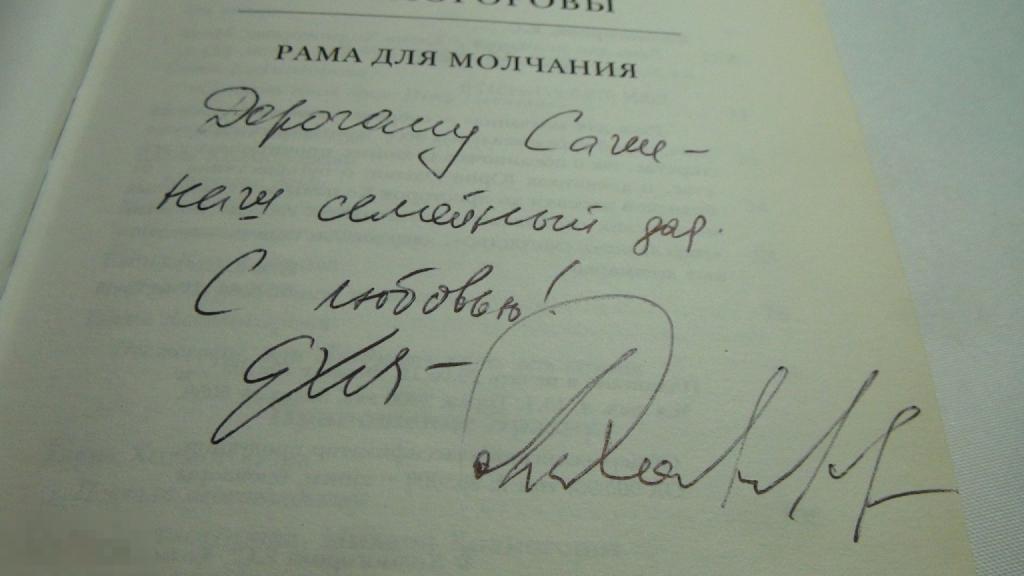 ОГОРОВЫ
РАМА ДЛЯ МОЛЧАНИЯ
Дорогому Саше –
наш семейный дар.
С любовью!